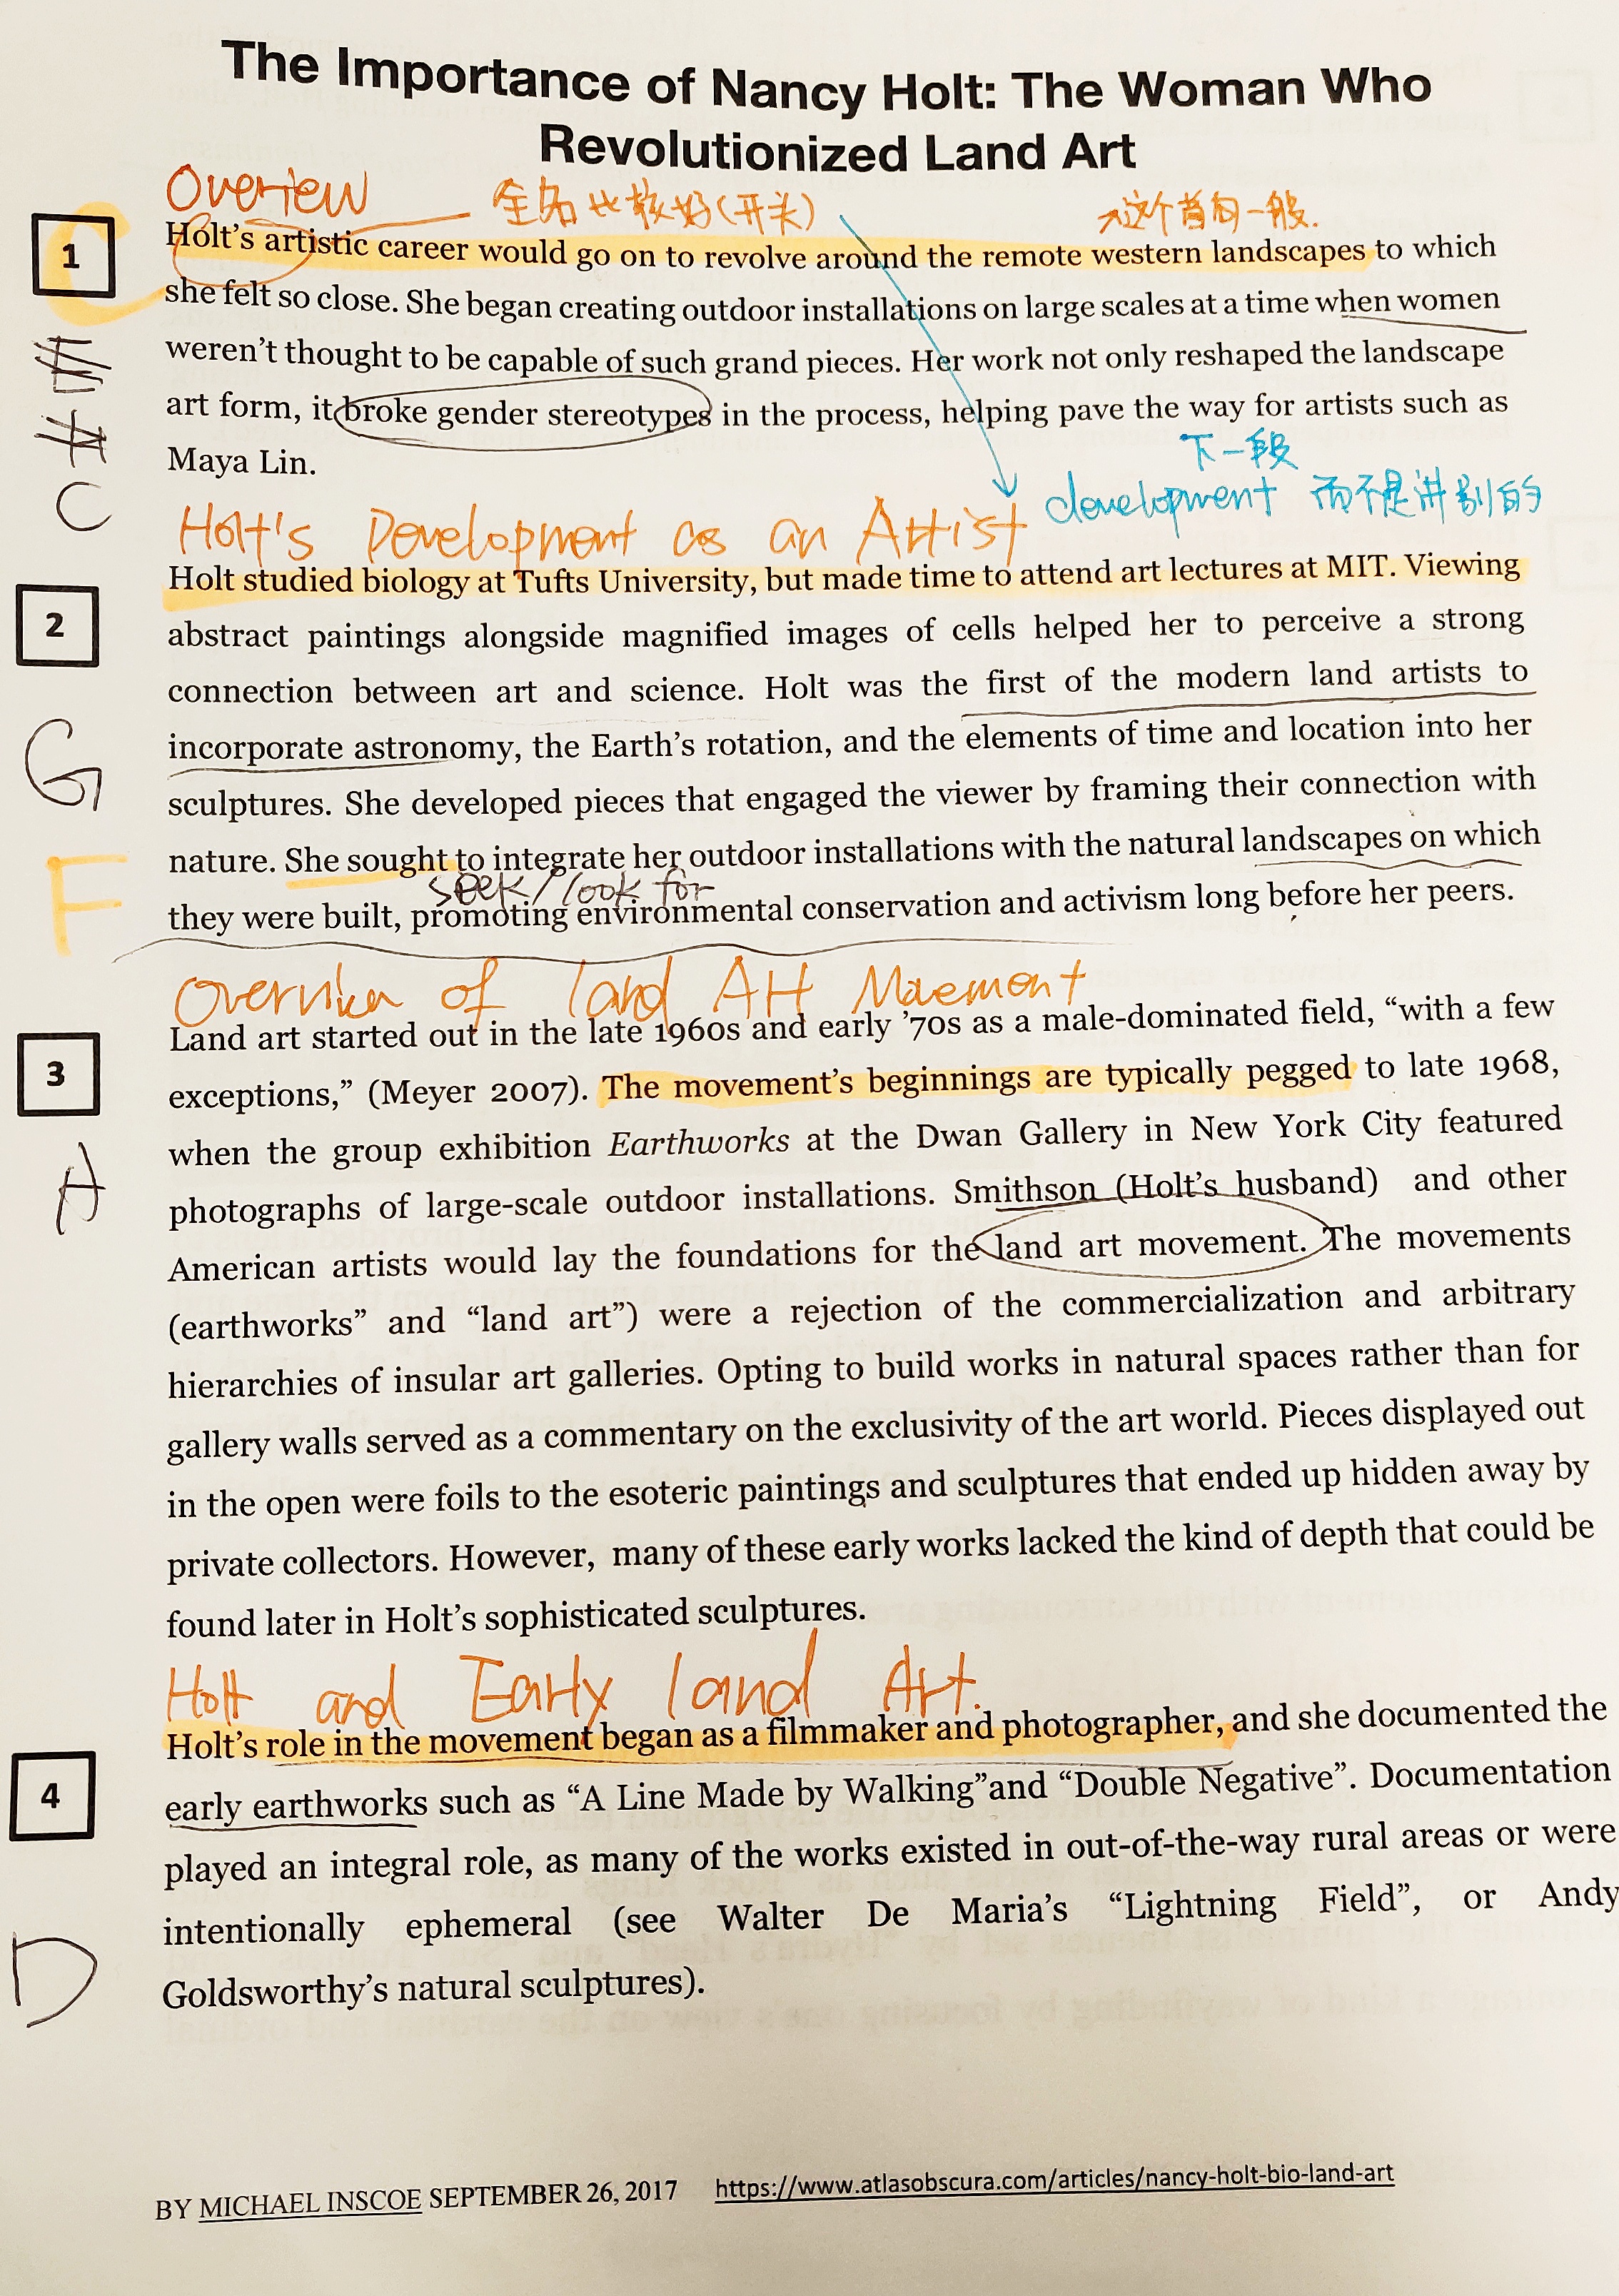 The Importance of Nancy Holt: The Woman Who
Revolutionized Land Art
Overview
全名比较好(开关)
这个首句一般.
1
Holt's artistic career would go on to revolve around the remote western landscapes to which
she felt so close. She began creating outdoor installations on large scales at a time when women
weren't thought to be capable of such grand pieces. Her work not only reshaped the landscape
art form, it broke gender stereotypes in the process, helping pave the way for artists such as
Maya Lin.
C
下一段
development 而不是讲别的
Holt's Development as an Artist
2
Holt studied biology at Tufts University, but made time to attend art lectures at MIT. Viewing
abstract paintings alongside magnified images of cells helped her to perceive a strong
connection between art and science. Holt was the first of the modern land artists to
incorporate astronomy, the Earth's rotation, and the elements of time and location into her
sculptures. She developed pieces that engaged the viewer by framing their connection with
nature. She sought to integrate her outdoor installations with the natural landscapes on which
seek/look for
they were built, promoting environmental conservation and activism long before her peers.
G
F
of land Art
3
Land art started out in the late 1960s and early '70s as a male-dominated field, “with a few
exceptions,” (Meyer 2007). The movement's beginnings are typically pegged to late 1968,
when the group exhibition Earthworks at the Dwan Gallery in New York City featured
photographs of large-scale outdoor installations. Smithson (Holt's husband) and other
American artists would lay the foundations for the land art movement. The movements
(earthworks” and “land art”) were a rejection of the commercialization and arbitrary
hierarchies of insular art galleries. Opting to build works in natural spaces rather than for
gallery walls served as a commentary on the exclusivity of the art world. Pieces displayed out
in the open were foils to the esoteric paintings and sculptures that ended up hidden away by
private collectors. However, many of these early works lacked the kind of depth that could be
found later in Holt's sophisticated sculptures.
A
Holt and Early land Art.
4
Holt's role in the movement began as a filmmaker and photographer, and she documented the
early earthworks such as “A Line Made by Walking”and “Double Negative”. Documentation
played an integral role, as many of the works existed in out-of-the-way rural areas or were
intentionally ephemeral (see Walter De Maria's “Lightning Field”, or Andy
Goldsworthy's natural sculptures).
D
BY MICHAEL INSCOE SEPTEMBER 26, 2017 https://www.atlasobscura.com/articles/nancy-holt-bio-land-art